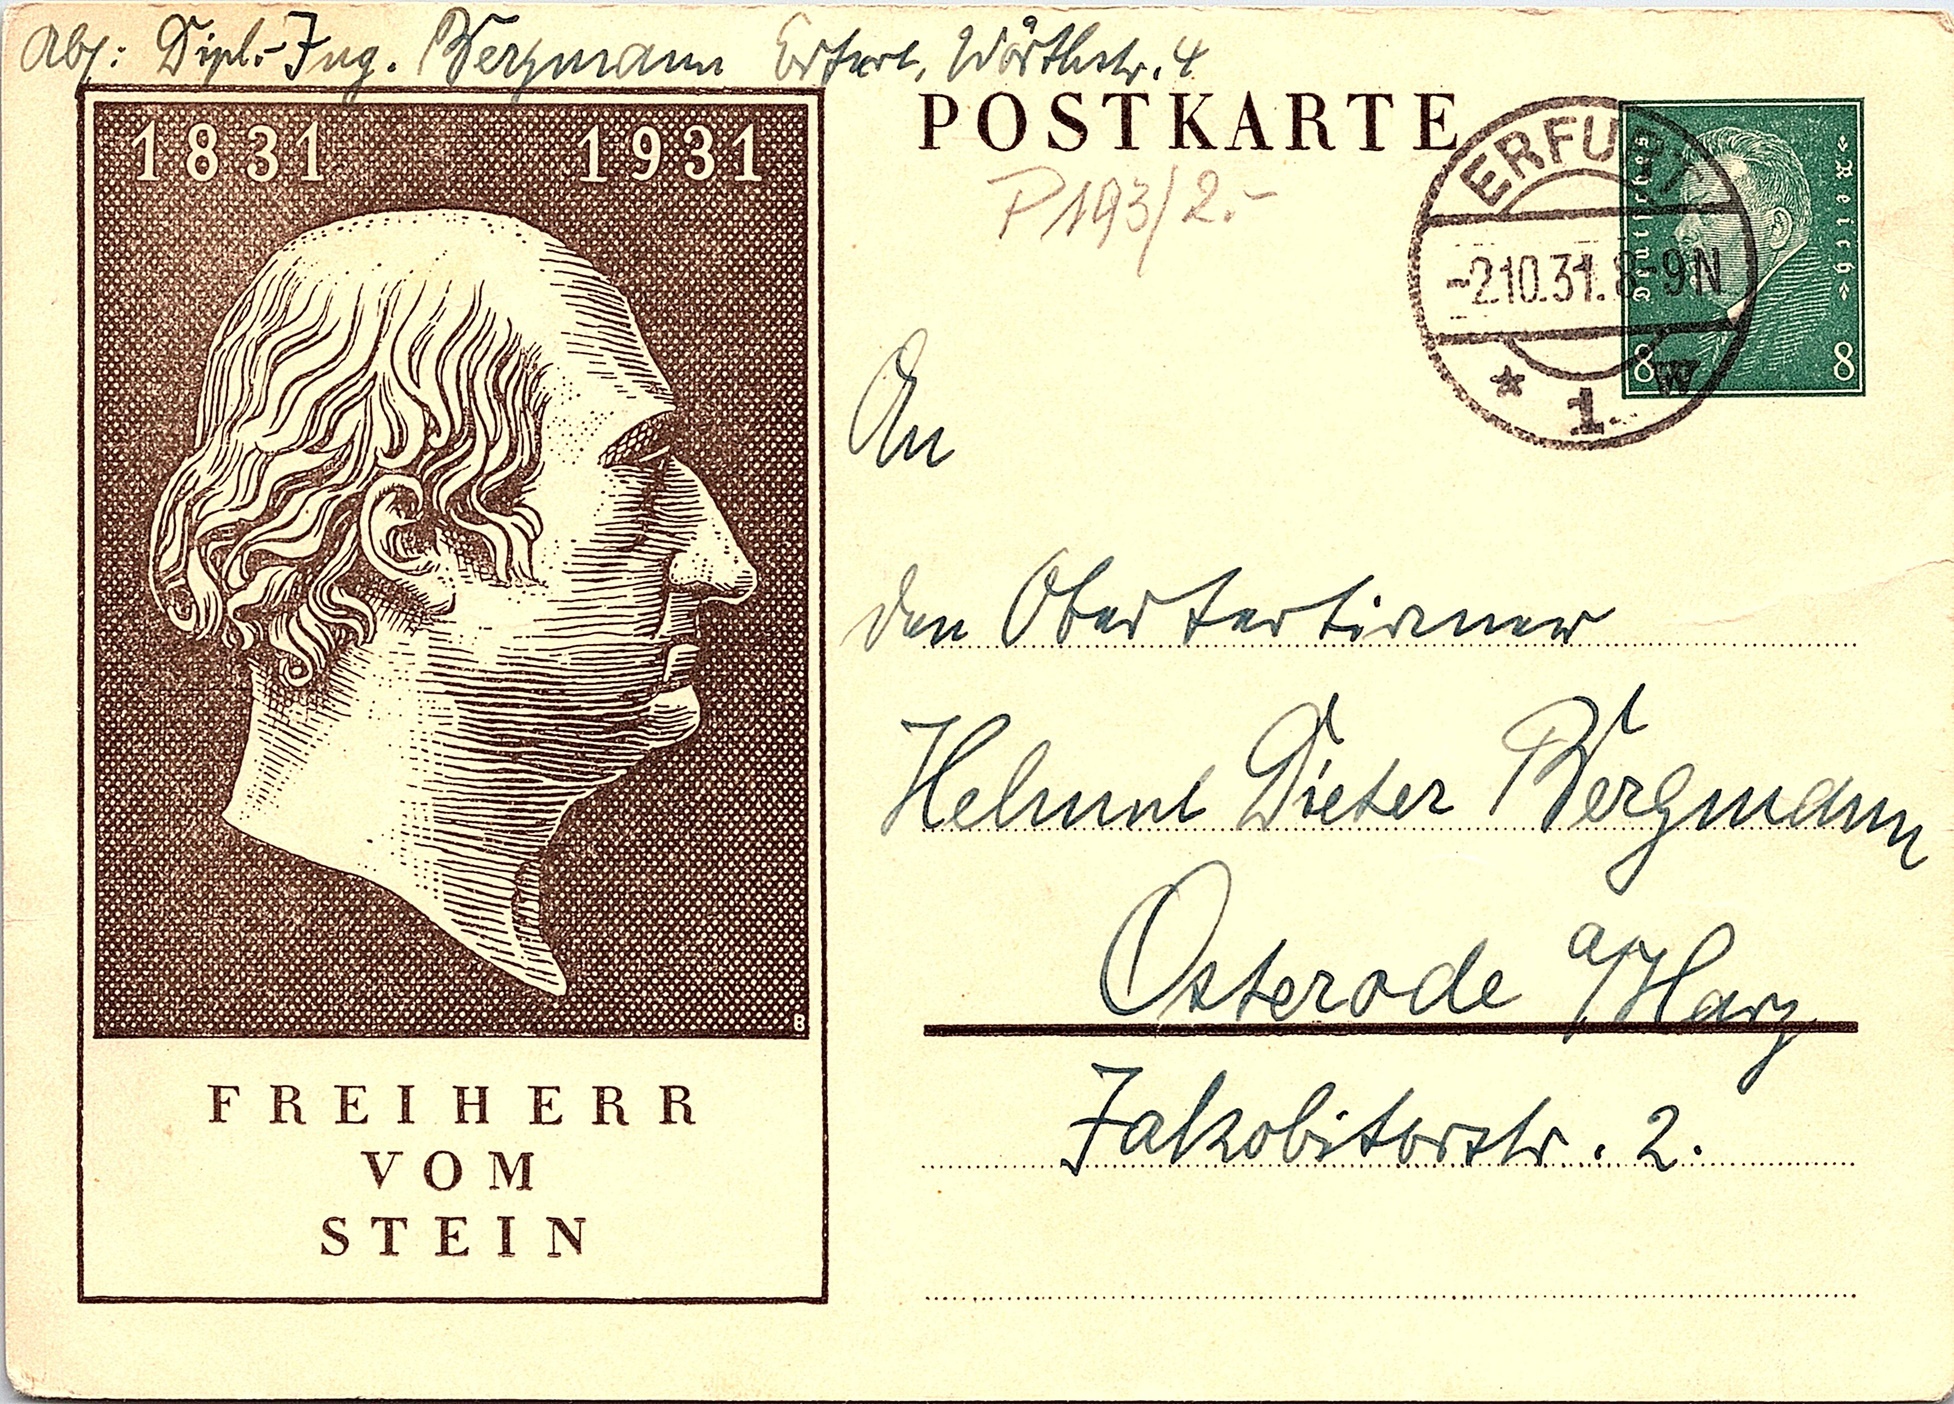 Abs: Dipl.-Ing. Bergmann Erfurt, Wörthstr. 4
1831 1931
POSTKARTE
P193/2.-
ERFURT
-2.10.31. 8-9N
* 1. W
Deutsches
Reich
8 8
An
den Obertertianer
Helmut Dieter Bergmann
Osterode a/Harz
Jakobitorstr. 2.
B
FREIHERR
VOM
STEIN